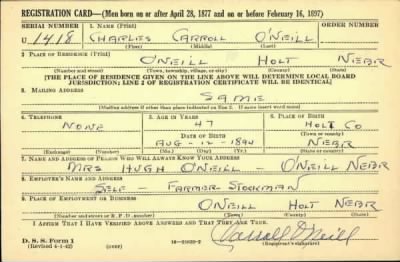 REGISTRATION CARD—(Men born on or after April 28, 1877 and on or before February 16, 1897)
SERIAL NUMBER 1. NAME (Print)
U 1418 CHARLES CARROLL O'NEILL
(First) (Middle) (Last)
2. PLACE OF RESIDENCE (Print)
O'NEILL HOLT NEBR
(Number and street) (Town, township, village, or city) (County) (State)
[THE PLACE OF RESIDENCE GIVEN ON THE LINE ABOVE WILL DETERMINE LOCAL BOARD
JURISDICTION; LINE 2 OF REGISTRATION CERTIFICATE WILL BE IDENTICAL]
3. MAILING ADDRESS
SAME
[Mailing address if other than place indicated on line 2. If same insert word same]
4. TELEPHONE 5. AGE IN YEARS 6. PLACE OF BIRTH
NONE 47 HOLT CO
DATE OF BIRTH (Town or county)
AUG 1894 NEBR
(Exchange) (Number) (Mo.) (Day) (Yr.) (State or country)
7. NAME AND ADDRESS OF PERSON WHO WILL ALWAYS KNOW YOUR ADDRESS
MRS HUGH O'NEILL - O'NEILL NEBR
8. EMPLOYER'S NAME AND ADDRESS
SELF - FARMER STOCKMAN
9. PLACE OF EMPLOYMENT OR BUSINESS
O'NEILL HOLT NEBR
(Number and street or R. F. D. number) (Town) (County) (State)
I AFFIRM THAT I HAVE VERIFIED ABOVE ANSWERS AND THAT THEY ARE TRUE.
D. S. S. Form 1 Carroll O'Neill
(Revised 4-1-42) (over) 16-21630-2 (Registrant's signature)